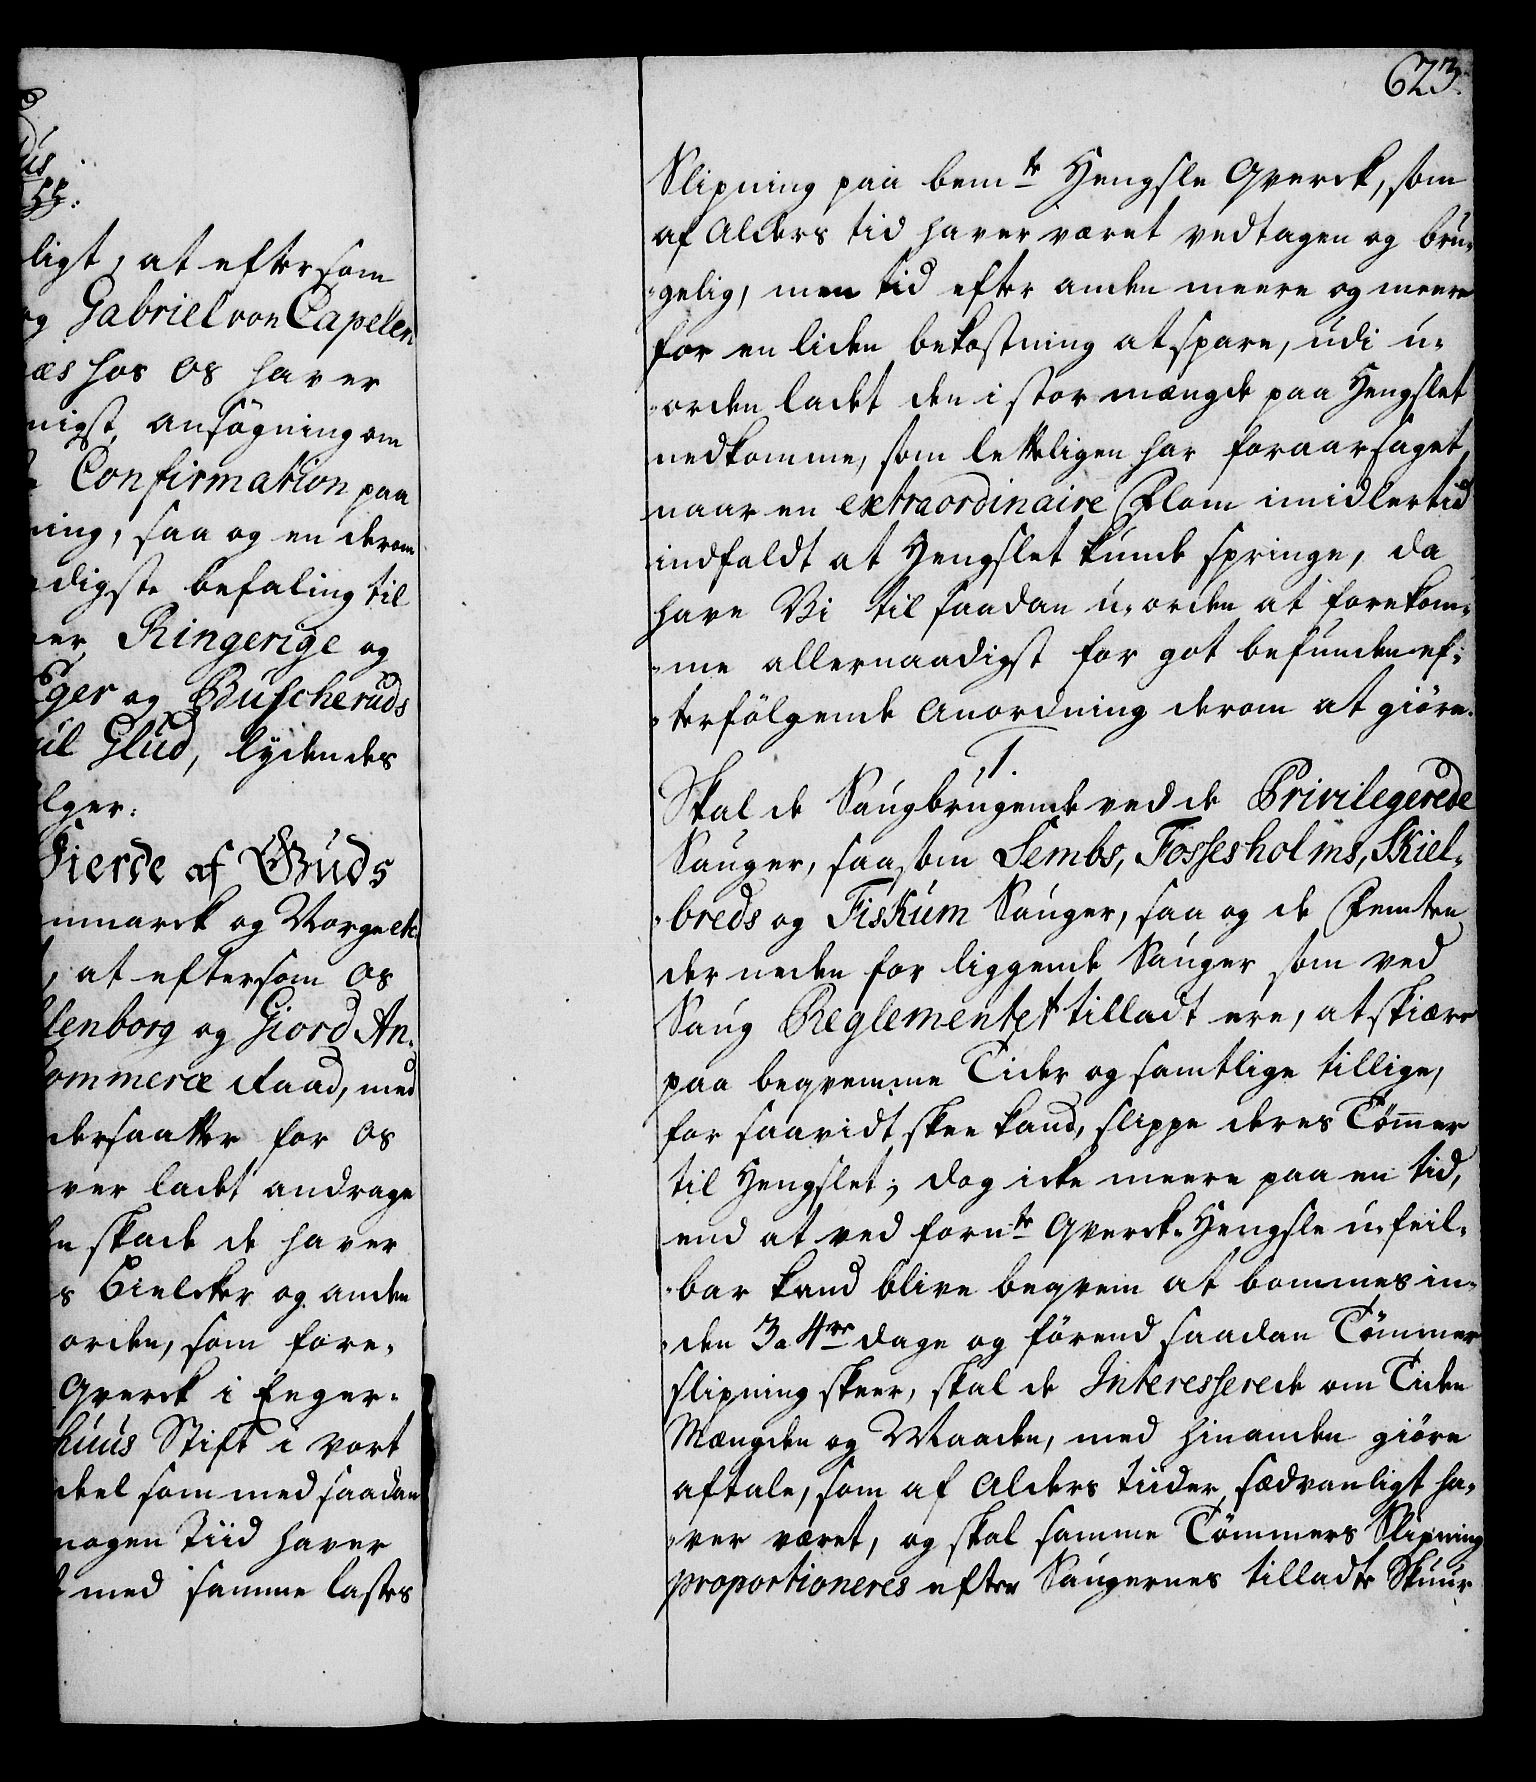 ligt, at eftersom
og Gabriel von Capelen
æs hos os haver
nigst ansøgning om
Confirmation paa
ning, saa og en derom
digste befaling til
er, Ringerige og
Eger og Buscheruds
Glud, lÿdendes
lger:
Fierde af Guds
nmarck og Norge etc.
, at eftersom os
lenborg og Giord An-
Commerce Raad, med
dersaatter for os
ver ladet andrage
skade de haver
s Bielcker og anden
orden, som fore-
Qverck i Eeger-
huus Stift i vort
deel som med saadan
nogen Tiid haver
med samme lastes
623.
Slipning paa bemte Hengsle Qverck, som
af Alders tid haver været vedtagen og bru-
-gelig, men tid efter anden meere og meere
for en liden bekostning at spare, udi u-
-orden ladet den i stor mængde paa Hengslet
nedkomme, som letteligen har foraarsaget,
naar en extraordinaire Flom imidlertid
indfaldt at Hengslet kunde springe, da
have Vi til saadan u-orden at forekom-
-me allernaadigst for got befunden ef-
-terfölgende Anordning derom at giöre.
1.
Skal de Saugbrugende ved de Privilegerede
Sauger, saasom Sembs, Fossesholms, Skiel-
-breds og Fiskum Sauger, saa og de Femten
der neden for liggende Sauger som ved
Saug Reglementet tilladt ere, at skiære
paa beqvemme Tider og samtlige tillige,
for saavidt skee kand, slippe deres Tömer
til Hengslet; dog icke meere paa en tid,
end at ved fornte Qverck-Hengsle u-feil-
-bar kand blive beqvem at bommes in-
-den 3 a 4re dage og förend saadan Tömmer
slipning skeer, skal de Interesserede om Tiden
Mængden og Maaden, med hinanden giöre
aftale, som af Alders tiider sædvanligt ha-
-ver været, og skal samme Tömmers Slipning
proportioneres efter Saugernes tilladte Skuur